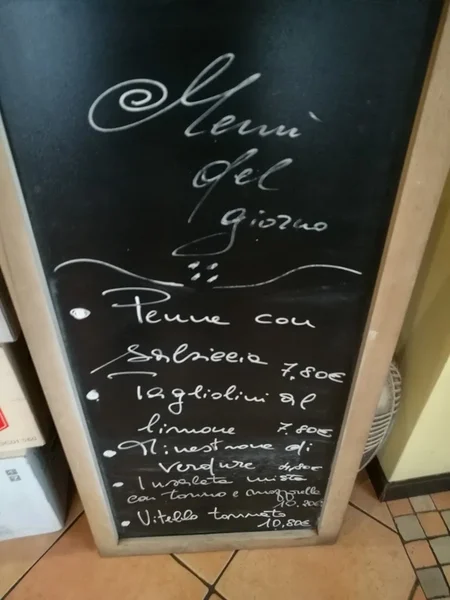 Menù
del
giorno
Penne con
salsiccia 7,80€
Tagliolini al
limone 7.80€
Minestrone di
verdure 4,80€
Insalata mista
con tonno e mozzarella
10,20€
Vitello tonnato
10,80€